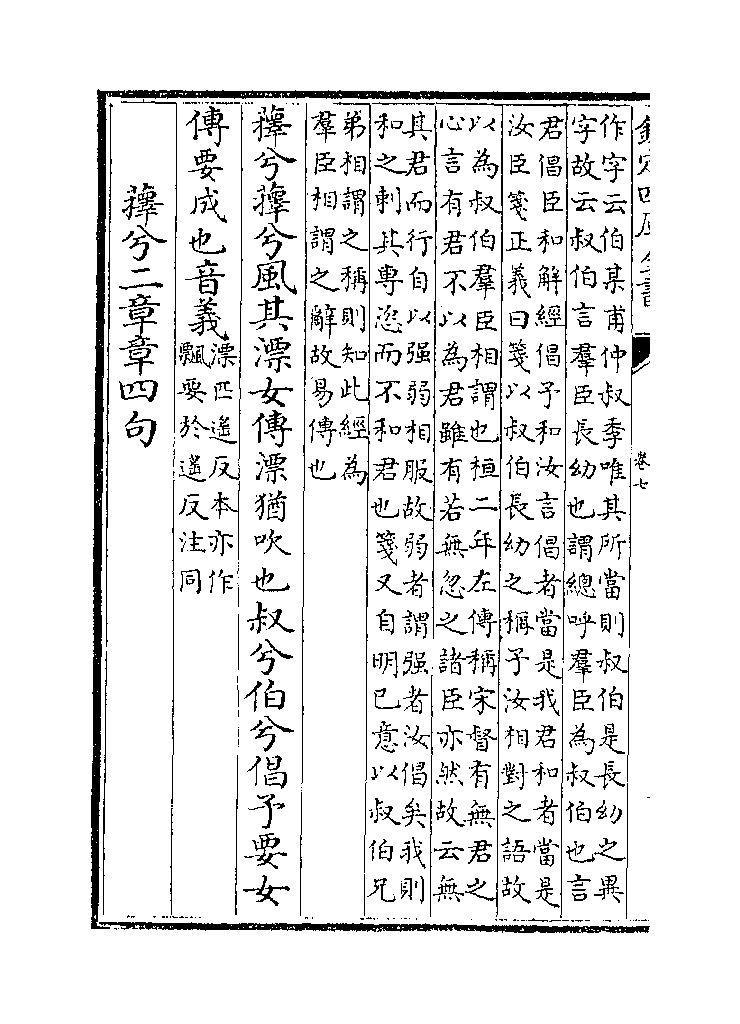 欽定四庫全書
卷七
作字云伯某甫仲叔季唯其所當則叔伯是長幼之異
字故云叔伯言羣臣長幼也謂總呼羣臣為叔伯也言
君倡臣和解經倡予和汝言倡者當是我君和者當是
汝臣箋正義曰箋以叔伯長幼之稱予汝相對之語故
以為叔伯羣臣相謂也桓二年左傳稱宋督有無君之
心言有君不以為君雖有若無忽之諸臣亦然故云無
其君而行自以强弱相服故弱者謂强者汝倡矣我則
和之刺其專恣而不和君也箋又自明已意以叔伯兄
弟相謂之稱則知此經為
羣臣相謂之辭故易傳也
蘀兮蘀兮風其漂女傳漂猶吹也叔兮伯兮倡予要女
傳要成也音義
漂匹遙反本亦作
飄要於遙反注同
蘀兮二章章四句